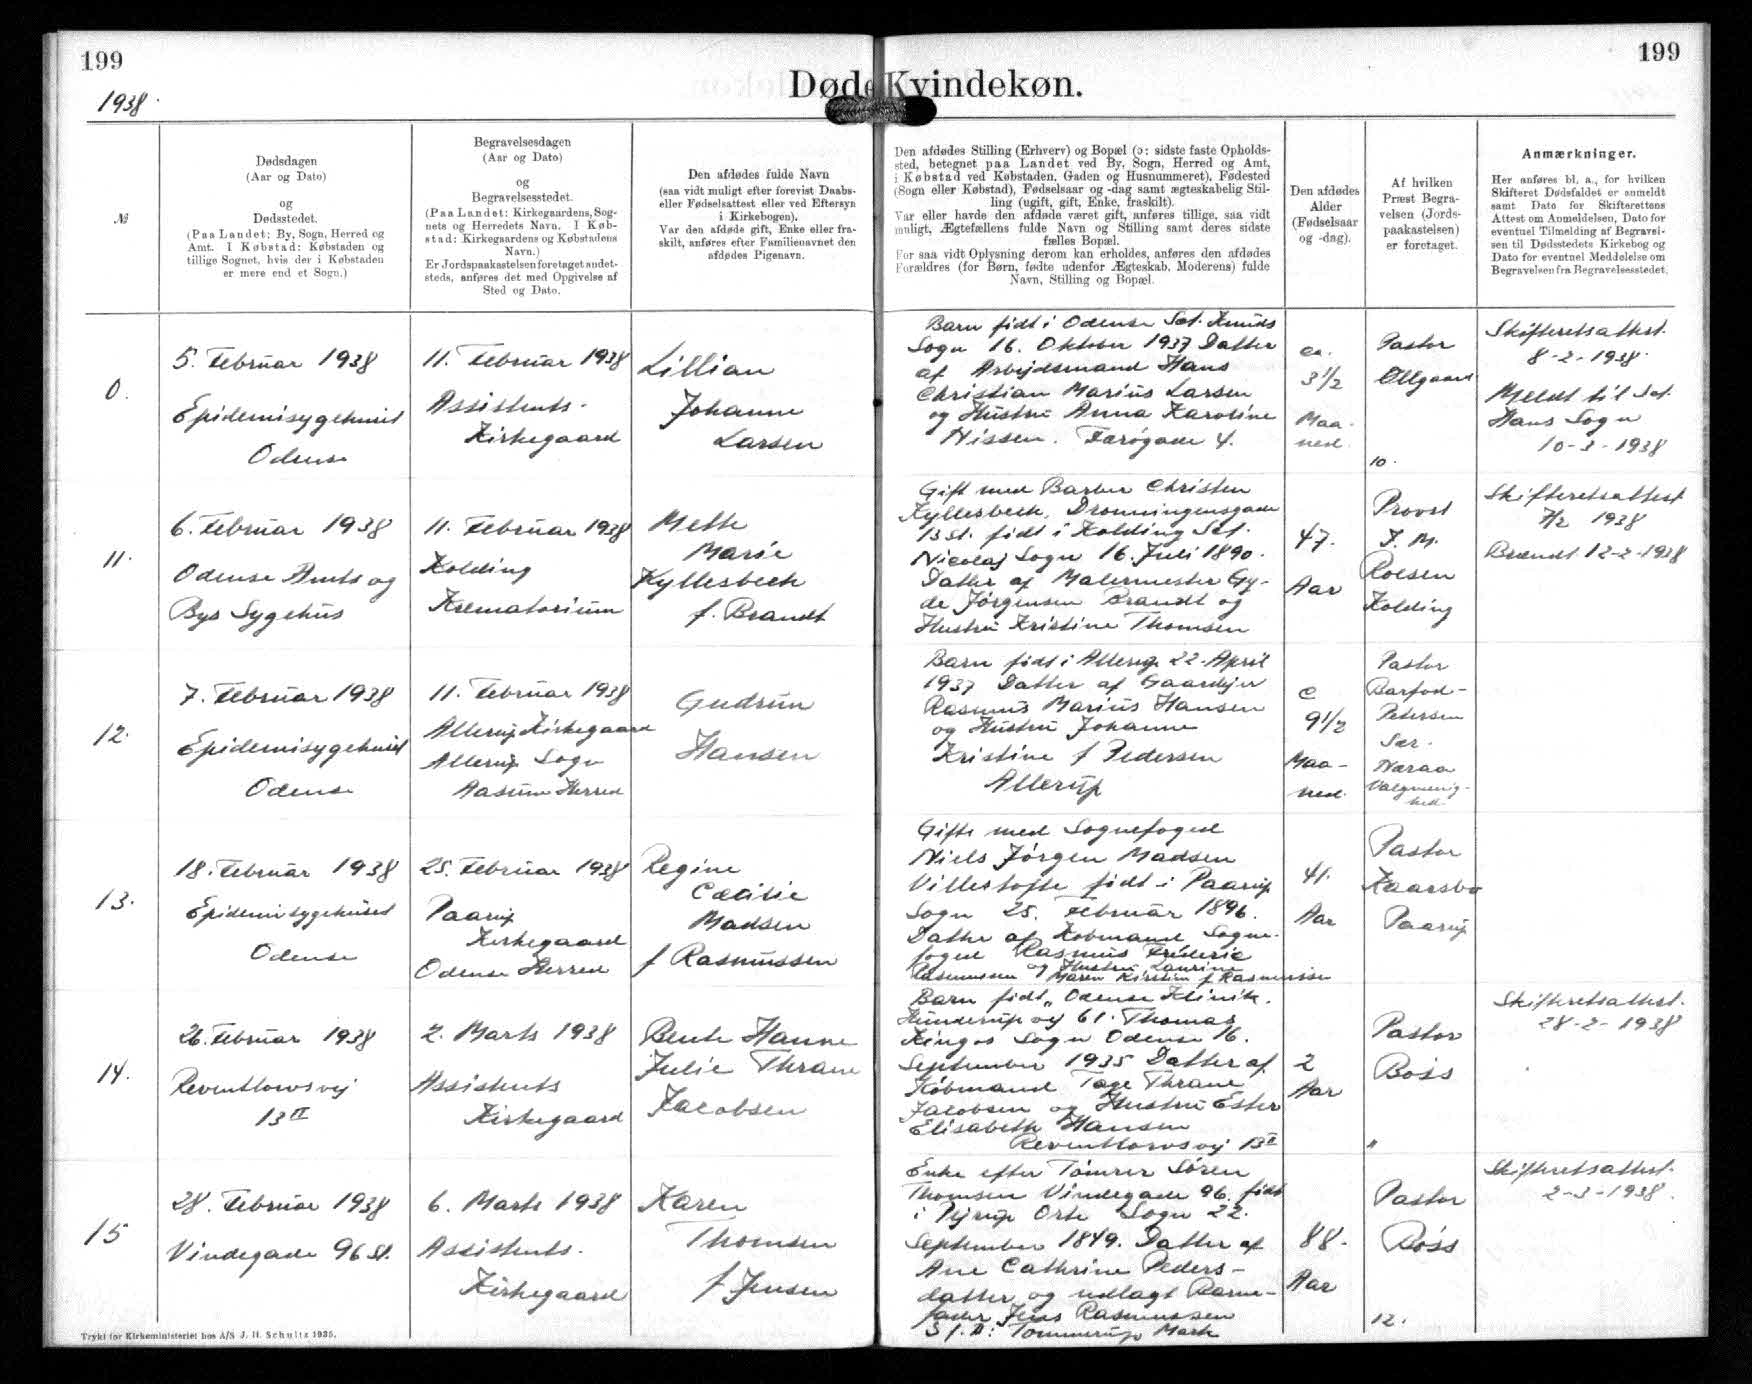 199
199
Døde Kvindekøn.
1938.
№
Dødsdagen
(Aar og Dato)
og
Dødsstedet.
(Paa Landet: By, Sogn, Herred og
Amt. I Købstad: Købstaden og
tillige Sognet, hvis der i Købstaden
er mere end et Sogn.)
Begravelsesdagen
(Aar og Dato)
og
Begravelsesstedet.
(Paa Landet: Kirkegaardens, Sog-
nets og Herredets Navn. I Køb-
stad: Kirkegaardens og Købstadens
Navn.)
Er Jordspaakastelsen foretaget andet-
steds, anføres det med Opgivelse af
Sted og Dato.
Den afdødes fulde Navn
(saa vidt muligt efter forevist Daabs-
eller Fødselsattest eller ved Eftersyn
i Kirkebogen).
Var den afdøde gift, Enke eller fra-
skilt, anføres efter Familienavnet den
afdødes Pigenavn.
Den afdødes Stilling (Erhverv) og Bopæl (ɔ: sidste faste Opholds-
sted, betegnet paa Landet ved By, Sogn, Herred og Amt,
i Købstad ved Købstaden, Gaden og Husnummeret), Fødested
(Sogn eller Købstad), Fødselsaar og -dag samt ægteskabelig Stil-
ling (ugift, gift, Enke, fraskilt).
Var eller havde den afdøde været gift, anføres tillige, saa vidt
muligt, Ægtefællens fulde Navn og Stilling samt deres sidste
fælles Bopæl.
For saa vidt Oplysning derom kan erholdes, anføres den afdødes
Forældres (for Børn, fødte udenfor Ægteskab, Moderens) fulde
Navn, Stilling og Bopæl.
Den afdødes
Alder
(Fødselsaar
og -dag).
Af hvilken
Præst Begra-
velsen (Jords-
paakastelsen)
er foretaget.
Anmærkninger.
Her anføres bl. a., for hvilken
Skifteret Dødsfaldet er anmeldt
samt Dato for Skifterettens
Attest om Anmeldelsen, Dato for
eventuel Tilmelding af Begravel-
sen til Dødsstedets Kirkebog og
Dato for eventuel Meddelelse om
Begravelsen fra Begravelsesstedet.
0.
5. Februar 1938
Epidemisygehuset
Odense
11. Februar 1938
Assistents-
Kirkegaard
Lillian
Johanne
Larsen
Barn født i Odense Sct. Knuds
Sogn 16. Oktober 1937 Datter
af Arbejdsmand Hans
Christian Marius Larsen
og Hustru Anna Karoline
Nissen. Færøgade 4.
ca.
3 1/2
Maa-
ned.
Pastor
Ellgaard
10.
Skifteretsattest.
8-2-1938.
Meldt til Sct.
Hans Sogn
10-3-1938
11.
6. Februar 1938
Odense Amts og
Bys Sygehus
11. Februar 1938
Kolding
Krematorium
Mette
Marie
Kyllesbech
f. Brandt
Gift med Barber Christen
Kyllesbech, Dronningensgade
13 St. født i Kolding Sct.
Nicolaj Sogn 16. Juli 1890.
Datter af Malermester Gy-
de Jørgensen Brandt og
Hustru Kristine Thomsen
47.
Aar
Provst
J. M.
Roesen
Kolding
Skifteretsattest
7/2 1938
Brændt 12-2-1938
12.
7. Februar 1938
Epidemisygehuset
Odense
11. Februar 1938
Allerup Kirkegaard
Allerup Sogn
Aasum Herred
Gudrun
Hansen
Barn født i Allerup 22. April
1937 Datter af Gaardejer
Rasmus Marius Hansen
og Hustru Johanne
Kristine f Pedersen
Allerup
c
9 1/2
Maa-
ned.
Pastor
Barfod-
Petersen
Sdr.
Næraa
Valgmenig-
hed.
13.
18. Februar 1938
Epidemisygehuset
Odense
25. Februar 1938
Paarup
Kirkegaard
Odense Herred
Regine
Cecilie
Madsen
f Rasmussen
Gift med Sognefoged
Niels Jørgen Madsen
Villestofte født i Paarup
Sogn 25. Februar 1896.
Datter af Købmand Sogne-
foged Rasmus Frederic
Rasmussen og Hustru Laurine
Maren Kirstine f Rasmussen
41.
Aar
Pastor
Kaarsbo
Paarup
14.
26. Februar 1938
Reventlowsvej
13 II
2. Marts 1938
Assistents
Kirkegaard
Bente Hanne
Julie Thrane
Jacobsen
Barn født „ Odense Klinik.
Hunderupvej 61. Thomas
Kingos Sogn Odense 16.
September 1935 Datter af
Købmand Tage Thrane
Jacobsen og Hustru Ester
Elisabeth Hansen
Reventlowsvej 13 II
2
Aar
Pastor
Böss
"
Skifteretsattest.
28-2-1938
15
28. Februar 1938
Vindegade 96 St.
6. Marts 1938
Assistents-
Kirkegaard
Karen
Thomsen
f Jensen
Enke efter Tømrer Søren
Thomsen Vindegade 96. født
i Pejrup Orte Sogn 22.
September 1849. Datter af
Ane Cathrine Peders-
datter og udlagt Barne-
fader Jens Rasmussen
Tommerup Mark
88.
Aar
Pastor
Böss
12.
Skifteretsattest.
2-3-1938.
Trykt for Kirkeministeriet hos A/S J. H. Schultz 1935.